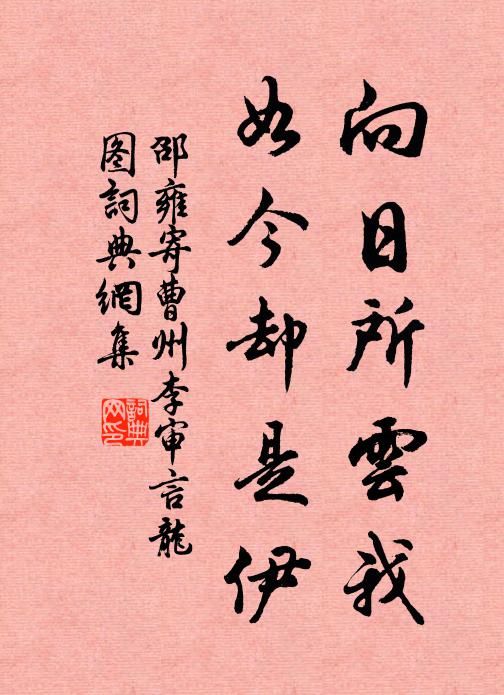 向日所雲我
如今却是伊
邵雍寄曹州李审言龍
图詞典網集
詞典
网印